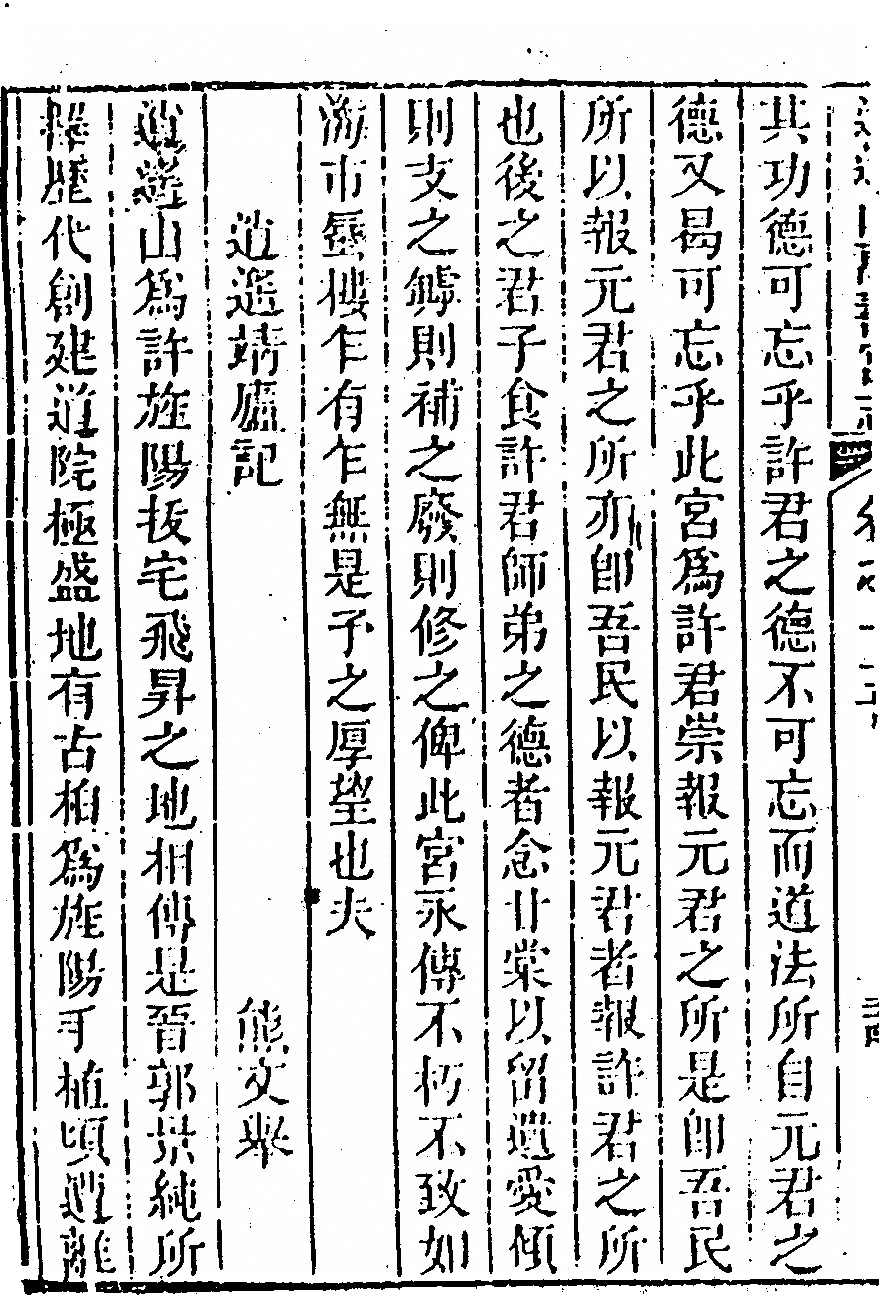 其功德可忘乎許君之德不可忘而道法所自元君之
德又曷可忘乎此宮爲許君崇報元君之所是卽吾民
所以報元君之所亦卽吾民以報元君者報許君之所
也後之君子食許君師弟之德者念廿棠以留遺愛傾
則支之罅則補之廢則修之俾此宮永傳不朽不致如
海市蜃樓乍有乍無是予之厚望也夫
逍遙靖廬記 熊文舉
逍遙山爲許旌陽拔宅飛昇之地相傳是晉郭景純所
擇歷代創建道院極盛地有古柏爲旌陽手植頃遭離